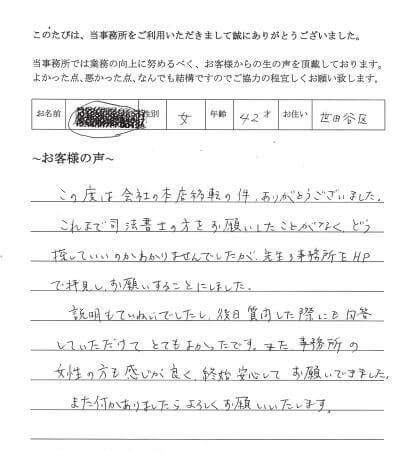 このたびは、当事務所をご利用いただきまして誠にありがとうございました。
当事務所では業務の向上に努めるべく、お客様からの生の声を頂戴しております。
よかった点、悪かった点、なんでも結構ですのでご協力の程宜しくお願い致します。
お名前 性別 女 年齢 42才 お住い 世田谷区
~お客様の声~
この度は会社の本店移転の件、ありがとうございました。
これまで司法書士の方をお願いしたことがなく、どう
探していいのかわかりませんでしたが、先生の事務所をHP
で拝見し、お願いすることにしました。
説明もていねいでしたし、後日質問した際にも回答
していただけてとてもよかったです。また事務所の
女性の方も感じが良く、終始安心してお願いできました。
また何かありましたらよろしくお願いいたします。